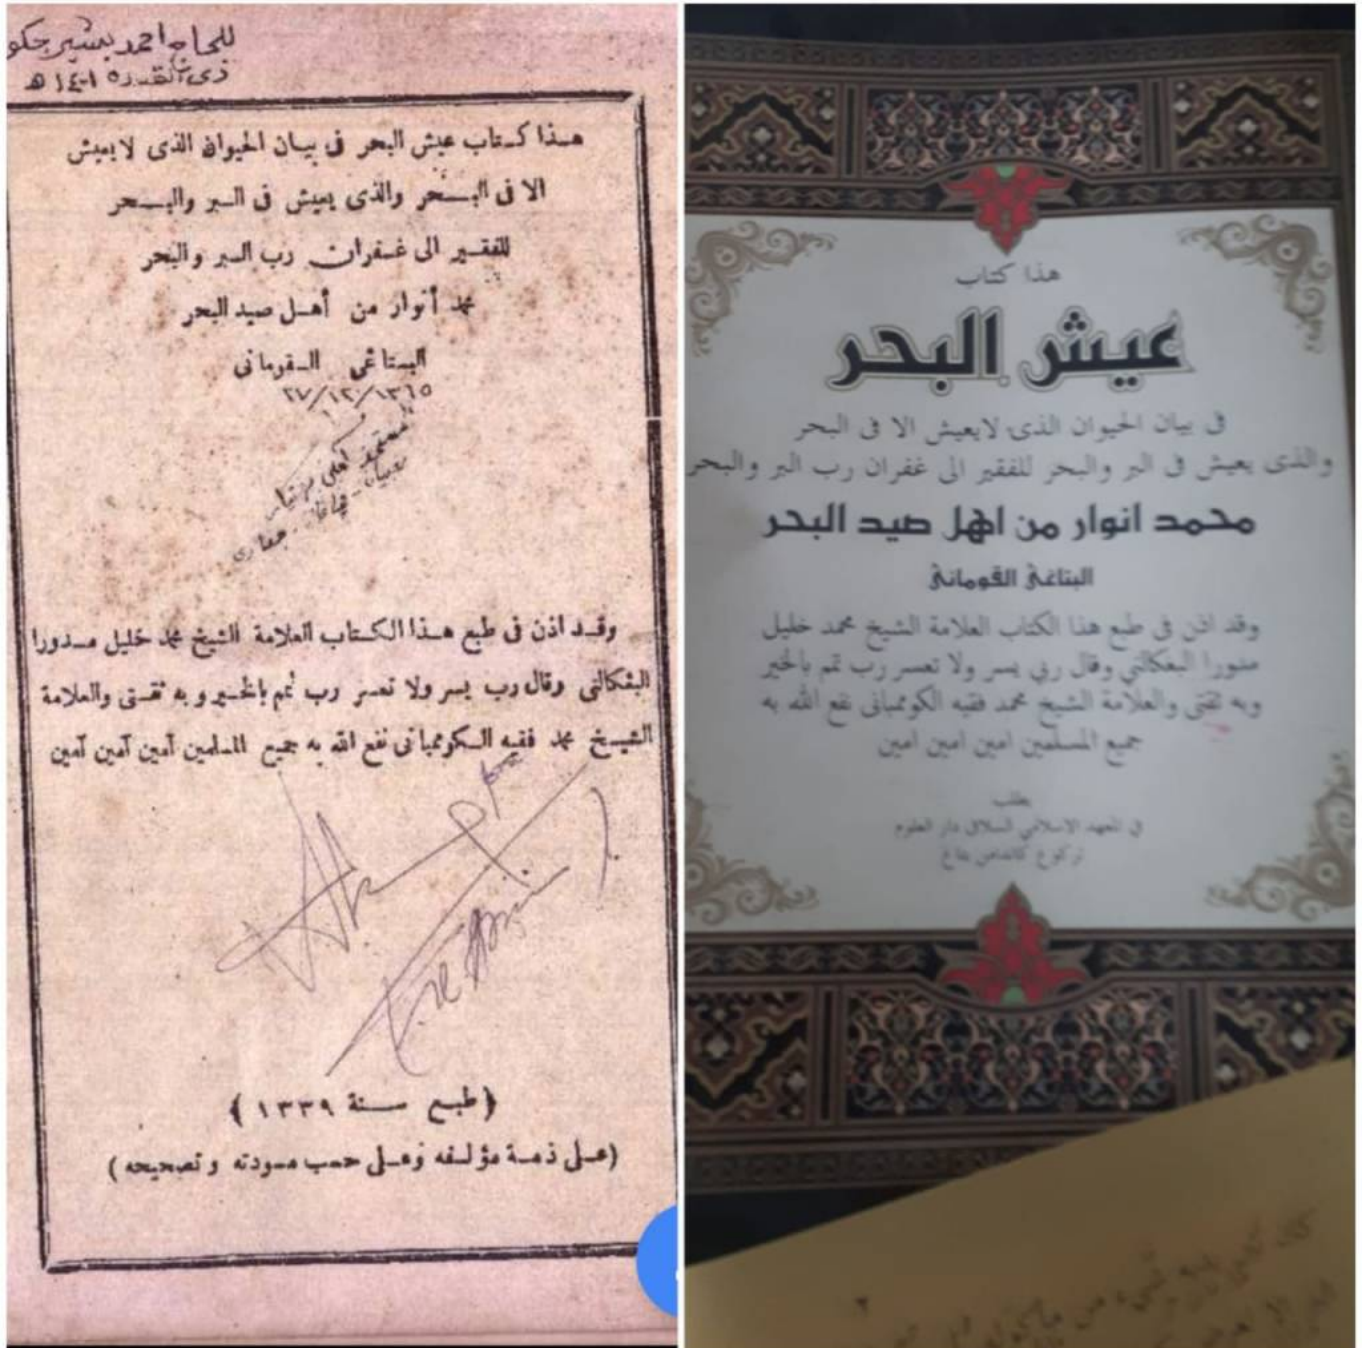 للحاج احمد بشير جكو
ذى القعدة ١٤٠١ ه
هذا كتاب عيش البحر فى بيان الحيوان الذى لا يعيش
الا فى البحر والذى يعيش فى البر والبحر
للفقير الى غفران رب البر والبحر
محمد أنوار من أهل صيد البحر
البتاغى القومانى
٢٧/١٢/١٣٦٥
وقد اذن فى طبع هذا الكتاب العلامة الشيخ محمد خليل مدورا
البڠكالنى وقال رب يسر ولا تعسر رب تمم بالخير وبه ثقتى والعلامة
الشيخ محمد فقيه الكومبانى نفع الله به جميع المسلمين آمين آمين آمين
(طبع سنة ١٣٣٩)
(على ذمة مؤلفه وعلى حسب مسودته وتصحيحه)
هذا كتاب
عيش البحر
فى بيان الحيوان الذى لايعيش الا فى البحر
والذى يعيش فى البر والبحر للفقير الى غفران رب البر والبحر
محمد انوار من اهل صيد البحر
البتاغى القومانى
وقد اذن فى طبع هذا الكتاب العلامة الشيخ محمد خليل
مدورا البعكالني وقال ربي يسر ولا تعسر رب تمم بالخير
وبه ثقتى والعلامة الشيخ محمد فقيه الكومبانى نفع الله به
جميع المسلمين امين امين امين
يطلب
فى المعهد الاسلامي السلافى دار العلوم